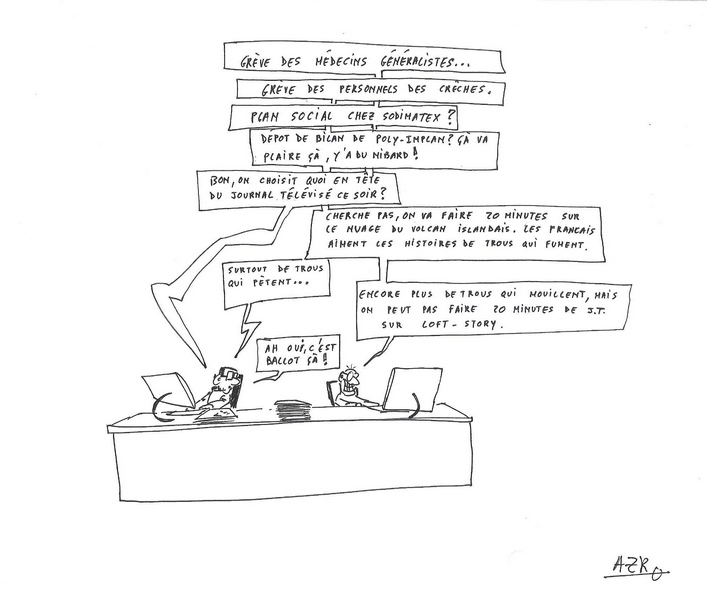 GRÈVE DES MÉDECINS GÉNÉRALISTES...
GRÈVE DES PERSONNELS DES CRÊCHES.
PLAN SOCIAL CHEZ SODIMATEX ?
DÉPOT DE BILAN DE POLY-IMPLAN? ÇÀ VA
PLAIRE ÇÀ, Y'A DU NIBARD !
BON, ON CHOISIT QUOI EN TÊTE
DU JOURNAL TÉLÉVISÉ CE SOIR ?
CHERCHE PAS, ON VA FAIRE 20 MINUTES SUR
LE NUAGE DU VOLCAN ISLANDAIS. LES FRANCAIS
AIMENT LES HISTOIRES DE TROUS QUI FUMENT.
SURTOUT DE TROUS
QUI PÈTENT...
ENCORE PLUS DE TROUS QUI MOUILLENT, MAIS
ON PEUT PAS FAIRE 20 MINUTES DE J.T.
SUR LOFT-STORY.
ÀH OUI, C'EST
BALLOT ÇÀ !
AZRO